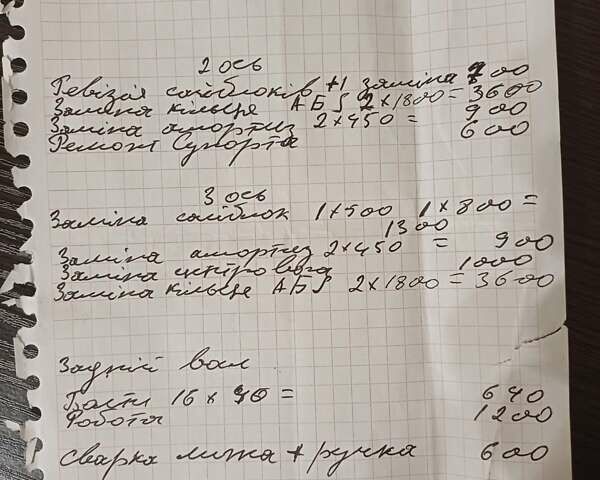 2 ось
Ревізія сайблоків +1 заміна 900
Заміна кільця АБS 2×1800 = 3600
Заміна амортиз 2×450 = 900
Ремонт супорта 600
3 ось
Заміна сайблок 1×500 1×800 =
1300
Заміна амортиз 2×450 = 900
Заміна центрового 1000
Заміна кільце АБS 2×1800 = 3600
Задній вал
Болти 16 × 40 = 640
Робота 1200
Сварка лижа + ручка 600